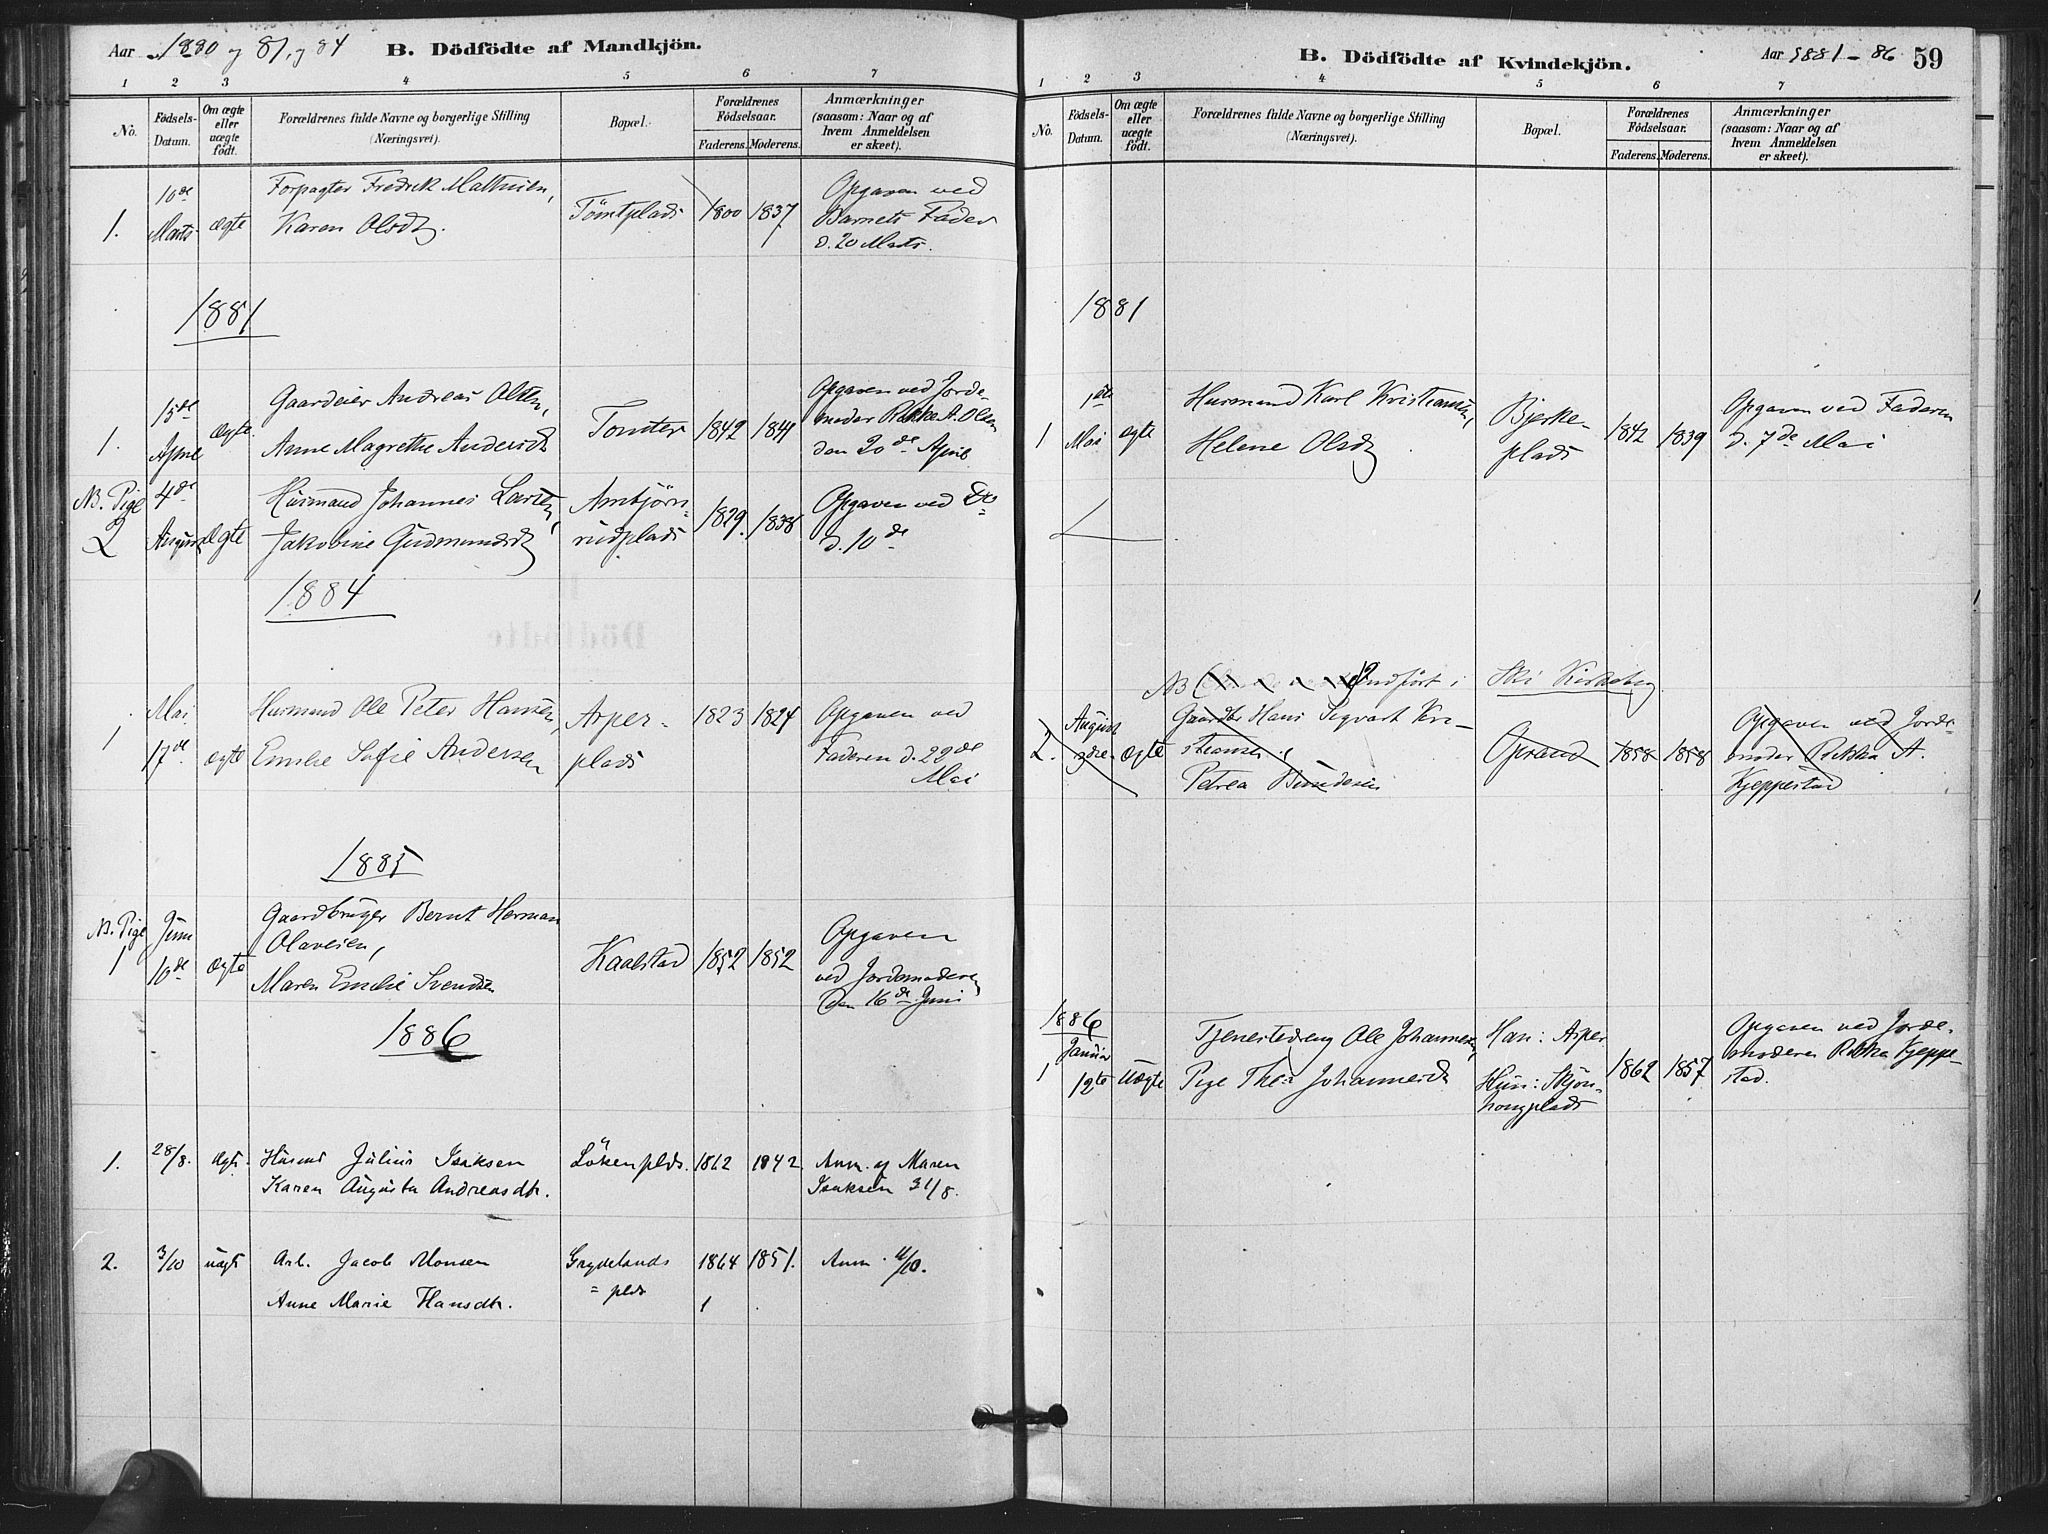 Aar 1880 og 81, og 84
B. Dödfödte af Mandkjön.
1 2 3 4 5 6 7
No.
Födsels-
Datum.
Om ægte
eller
uægte
födt.
Forældrenes fulde Navne og borgerlige Stilling
(Næringsvei).
Bopæl.
Forældrenes
Födselsaar.
Faderens. Moderens.
Anmærkninger
(saasom: Naar og af
hvem Anmeldelsen
er skeet).
1.
10de
Marts
ægte
Forpagter Fredrik Mathisen,
Karen Olsdtr.
Tömtplads
1800
1837
Opgaven ved
Barnets Fader
d. 20 Marts.
1881
1.
15de
April
Ægte.
Gaardeier Andreas Olsen,
Anne Magrethe Andersdtr
Tomter
1842
1841
Opgaven ved Jorde-
moder Rikka A. Olsen
den 20de April
NB. Pige
2
4de
August
Ægte
Husmand Johannes Larsen,
Jakobine Gudmundsdtr
Arnbjörns=
rudplads
1829.
1838
Opgaven ved Do
d. 10de
1884
1
Mai
17de
ægte
Husmand Ole Peter Hansen,
Emilie Sofie Andersen
Asper-
plads
1823
1824
Opgaven ved
Faderen d. 22de
Mai
1885
NB. Pige
1
Juni
10de
Ægte
Gaardbruger Bernt Herman
Olavesen,
Maren Emilie Svendsen
Kaalstad
1852
1852
Opgaven
ved Jordemoderen
den 16de Juni
1886
1.
28/8.
Ægte.
Husmd Julius Isaksen
Karen Augusta Andreasdtr.
Lökenplds.
1862
1842.
Anm. af Maren
Isaksen 31/8.
2.
3/10
uægte
Arb. Jacob Monsen
Anne Marie Hansdtr.
Grydelands
= plds
1864
1851.
Anm. 4/10.
B. Dödfödte af Kvindekjön.
Aar 1881-86
59
1 2 3 4 5 6 7
No.
Födsels-
Datum.
Om ægte
eller
uægte
födt.
Forældrenes fulde Navne og borgerlige Stilling
(Næringsvei).
Bopæl.
Forældrenes
Födselsaar.
Faderens. Moderens.
Anmærkninger
(saasom: Naar og af
hvem Anmeldelsen
er skeet).
1881
1
1ste
Mai
ægte
Husmand Karl Kristiansen,
Helene Olsdtr
Bjerke-
plads
1842
1839
Opgaven ved Faderen
d. 7de Mai
NB indfört i Ski Kirkebog
2.
August
Ægte
Gaardbr Hans Sigvart Kri-
stiansen
Petrea
Oprand
1858
1858
Opgaven ved Jorde-
moder Rikka A.
Kjeppestad
1886
1
Januar
12te
Uægte
Tjenestedreng Ole Johannesen,
Pige Thea Johannesdtr
Han: Asper
Hun: Skjön-
hougplads
1862
1857
Opgaven ved Jorde-
moderen Rikka Kjeppe-
stad.